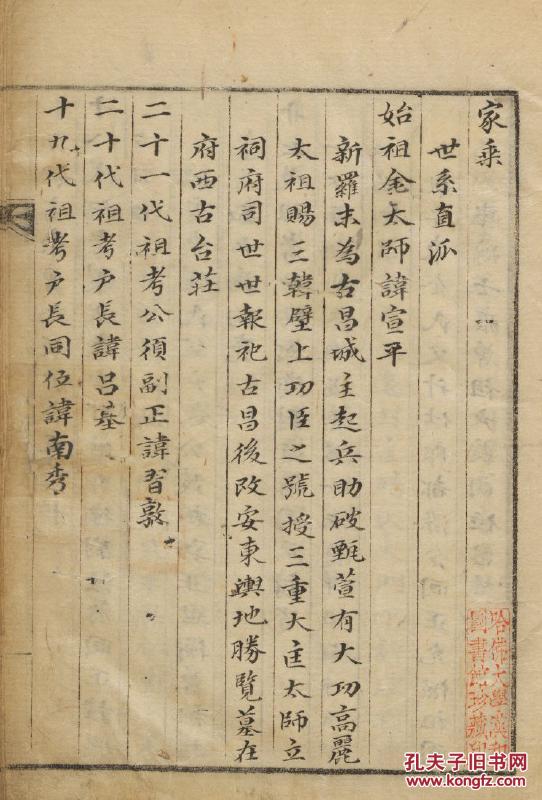 家乘
世系直派
始祖金太師諱宣平
新羅末為古昌城主起兵助破甄萱有大功高麗
太祖賜三韓壁上功臣之號授三重大匡太師立
祠府司世世報祀古昌後改安東輿地勝覽墓在
府西古台莊
二十一代祖考公須副正諱習敦
二十代祖考戶長諱呂基
十九代祖考戶長同正諱南秀
哈佛大學漢和
圖書館珍藏印
孔夫子旧书网
www.kongfz.com